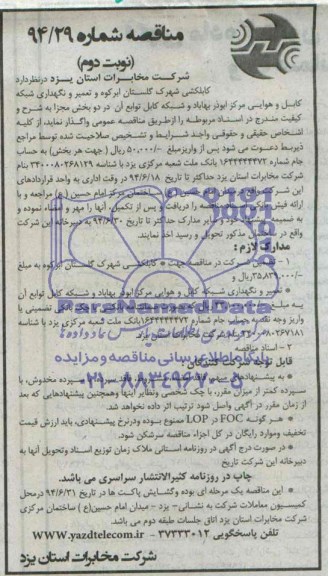 مناقصه شماره ۹۴/۲۹
(نوبت دوم)
شرکت مخابرات استان یزد درنظردارد
کابلکشی شهرک گلستان ابرکوه و تعمیر و نگهداری شبکه
کابل و هوایی مرکز ابوذر بهاباد و شبکه کابل توابع آن در دو بخش مجزا به شرح و
کیفیت مندرج در اسناد مربوطه را ازطریق مناقصه عمومی واگذار نماید، از کلیه
اشخاص حقیقی و حقوقی واجد شرایط و تشخیص صلاحیت شده توسط مراجع
ذیربط دعوت می شود پس از واریز مبلغ ۵۰,۰۰۰/- ریال (جهت هر بخش) به حساب
جام شماره ۱۶۴۴۴۴۴۴۷۲ بانک ملت شعبه مرکزی یزد با شناسه
شرکت مخابرات استان یزد حداکثر تا تاریخ ۹۴/۶/۱۸ در وقت اداری به واحد قراردادهای
مراجعه و با
دریافت و پس از تکمیل، آنها را مهر و امضاء نموده و
مدارک حداکثر تا تاریخ ۹۴/۶/۳۰ به دبیرخانه این شرکت
واقع در مذکور تحویل و رسید اخذ نمایند.
مدارک لازم:
شرکت در مناقصه جهت * کابلکشی شهرک گلستان ابرکوه به مبلغ
ریال و
* تعمیر و نگهداری شبکه کابل و هوایی مرکز ابوذر بهاباد و شبکه کابل توابع آن
بانکی تضمینی یا
واریز وجه نقد به حساب جام شماره بانک ملت شعبه مرکزی یزد با شناسه
شرکت مخابرات استان یزد
۲ - اسناد مناقصه
ParsNamadData
پایگاه اطلاع رسانی مناقصه و مزایده
۰۲۱-۸۸۳۴۹۶۷۰-۵
قابل توجه شرکت کنندگان:
* به پیشنهادهای سپرده مخدوش، یا
سپرده کمتر از میزان مقرر، یا چک شخصی ونظایر آنها وهمچنین پیشنهادهایی که بعد
از زمان مقرر در آگهی واصل شود ترتیب اثر داده نخواهد شد.
* هر گونه FOC در LOP ممنوع بوده ودرنرخ پیشنهادی، باید ارزش قیمت
تخفیف وموارد رایگان در کل اجزاء مناقصه سرشکن شود.
* در صورت درج آگهی در روزنامه استانی ملاک زمان توزیع اسناد وتحویل آنها به
دبیرخانه این شرکت تاریخ
چاپ در روزنامه کثیرالانتشار سراسری می باشد.
* این مناقصه یک مرحله ای بوده وگشایش پاکت ها در تاریخ ۹۴/۶/۳۱ درمحل
کمیسیون معاملات شرکت به نشانی- یزد - میدان امام حسین(ع) ساختمان مرکزی
شرکت مخابرات استان یزد اتاق جلسات طبقه دوم می باشد.
تلفن پاسخگویی ۳۷۳۳۳۰۱۲ - www.yazdtelecom.ir
شرکت مخابرات استان یزد